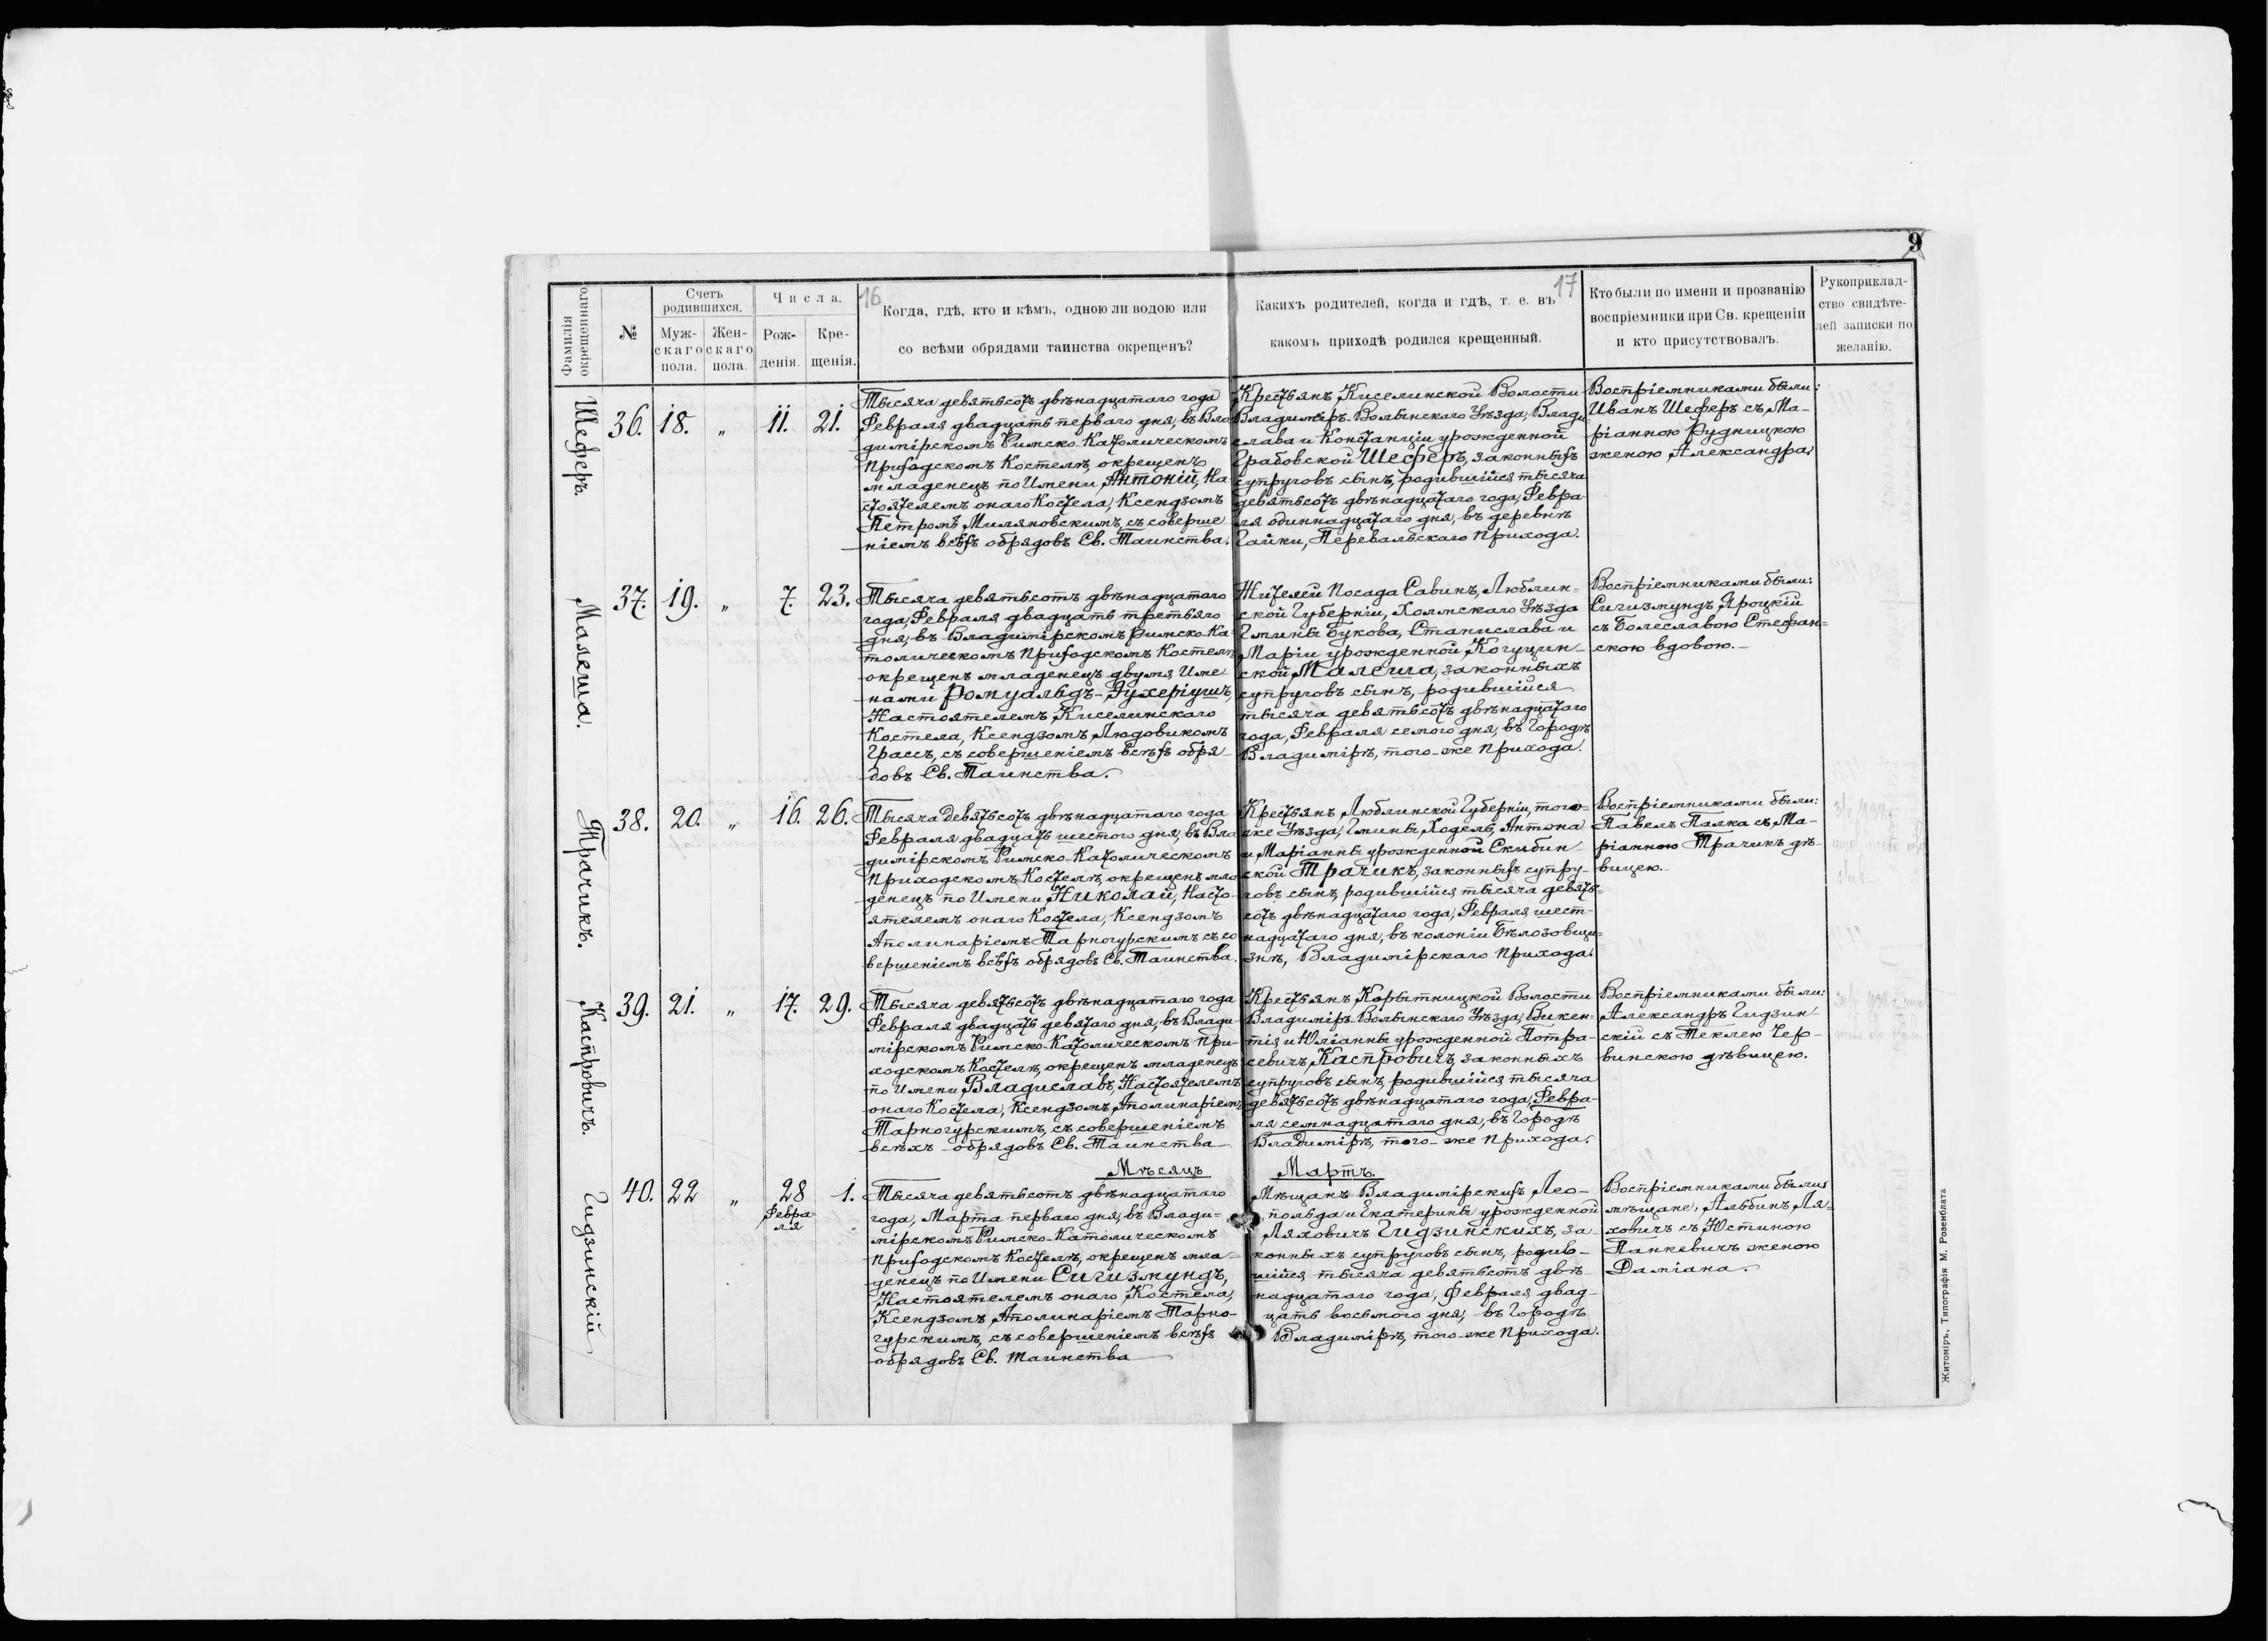 9
16
17
Фамилія окрещеннаго
№
Счетъ родившихся.
Муж-
скаго
пола.
Жен-
скаго
пола.
Числа.
Рож-
денія.
Кре-
щенія.
Когда, гдѣ, кто и кѣмъ, одною ли водою или
со всѣми обрядами таинства окрещенъ?
Какихъ родителей, когда и гдѣ, т. е. въ
какомъ приходѣ родился крещенный.
Кто были по имени и прозванію
воспріемники при Св. крещеніи
и кто присутствовалъ.
Рукоприклад-
ство свидѣте-
лей записки по
желанію.
Шеферъ.
36. 18. „ 11. 21.
Тысяча девятьсотъ двѣнадцатаго года
Февраля двадцать перваго дня, въ Вла
димірскомъ Римско-Католическомъ
Приходскомъ Костелѣ, окрещенъ
младенецъ по Имени Антоній, На
стоятелемъ онаго Костела, Ксендзомъ
Петромъ Миляновскимъ, съ соверше
ніемъ всѣхъ обрядовъ Св. Таинства.
Крестьянъ Киселинской Волости
Владиміръ-Волынскаго Уѣзда, Влади
слава и Констанціи урожденной
Грабовской Шеферъ, законныхъ
супруговъ сынъ, родившійся тысяча
девятьсотъ двѣнадцатаго года, Февра
ля одиннадцатаго дня, въ деревнѣ
Гайки, Перевальскаго Прихода.
Воспріемниками были:
Иванъ Шеферъ съ Ма-
ріанною Рудницкою
женою Александра,
Малеша.
37. 19. „ 7. 23.
Тысяча девятьсотъ двѣнадцатаго
года, Февраля двадцать третьяго
дня, въ Владимірскомъ Римско-Ка
толическомъ Приходскомъ Костелѣ,
окрещенъ младенецъ двумя Име
нами Ромуальдъ-Эухеріушъ,
Настоятелемъ Киселинскаго
Костела, Ксендзомъ Людовикомъ
Грассъ, съ совершеніемъ всѣхъ обря
довъ Св. Таинства.
Жителей Посада Савинъ, Люблин-
ской Губерніи, Холмскаго Уѣзда
Гмины Букова, Станислава и
Маріи урожденной Когуцин-
ской Малеша, законныхъ
супруговъ сынъ, родившійся
тысяча девятьсотъ двѣнадцатаго
года, Февраля семого дня, въ Городѣ
Владимірѣ, того-же Прихода.
Воспріемниками были:
Сигизмундъ Яроцкій
съ Болеславою Стефан=
скою вдовою.
Трачикъ.
38. 20. „ 16. 26.
Тысяча девятьсотъ двѣнадцатаго года
Февраля двадцать шестого дня, въ Вла
димірскомъ Римско-Католическомъ
Приходскомъ Костелѣ, окрещенъ мла
денецъ по Имени Николай, Насто-
ятелемъ онаго Костела, Ксендзомъ
Аполинаріемъ Тарногурскимъ съ со
вершеніемъ всѣхъ обрядовъ Св. Таинства.
Крестьянъ Люблинской Губерніи, того-
же Уѣзда, Гмины Ходель, Антона
и Маріанны урожденной Скибин-
ской Трачикъ, законныхъ супру-
говъ сынъ, родившійся тысяча девять
сотъ двѣнадцатаго года, Февраля шест-
надцатаго дня, въ колоніи Бѣлозовщи=
знѣ, Владимірскаго Прихода.
Воспріемниками были:
Павелъ Палка съ Ма-
ріанною Трачикъ дѣ-
вицею.
Каспровичъ.
39. 21. „ 17. 29.
Тысяча девятьсотъ двѣнадцатаго года
Февраля двадцать девятаго дня, въ Влади-
мірскомъ Римско-Католическомъ При-
ходскомъ Костелѣ, окрещенъ младенецъ
по Имени Владиславъ, Настоятелемъ
онаго Костела, Ксендзомъ Аполинаріемъ
Тарногурскимъ, съ совершеніемъ
всѣхъ обрядовъ Св. Таинства
Крестьянъ Корытницкой Волости
Владиміръ-Волынскаго Уѣзда, Викен-
тія и Юліанны урожденной Потра-
севичъ, Каспровичъ, законныхъ
супруговъ сынъ, родившійся тысяча
девятьсотъ двѣнадцатаго года, Февра-
ля семнадцатаго дня, въ Городѣ
Владимірѣ, того-же Прихода.
Воспріемниками были:
Александръ Гидзин-
скій съ Теклею Чер-
винскою дѣвицею.
Мѣсяцъ Мартъ.
Гидзинскій
40. 22 „ 28 1.
Февра-
ля
Тысяча девятьсотъ двѣнадцатаго
года, Марта перваго дня, въ Влади-
мірскомъ Римско-Католическомъ
Приходскомъ Костелѣ, окрещенъ мла-
денецъ по Имени Сигизмундъ,
Настоятелемъ онаго Костела,
Ксендзомъ Аполинаріемъ Тарно-
гурскимъ, съ совершеніемъ всѣхъ
обрядовъ Св. Таинства
Мѣщанъ Владимірскихъ Лео-
польда и Екатерины урожденной
Ляховичъ Гидзинскихъ, за-
конныхъ супруговъ сынъ, родив-
шійся тысяча девятьсотъ двѣ-
надцатаго года, Февраля двад-
цать восьмого дня, въ Городѣ
Владимірѣ, того-же Прихода.
Воспріемниками были
мѣщане, Альбинъ Ля=
ховичъ съ Юстиною
Панкевичъ женою
Даміана.
Житоміръ, Типографія М. Розенблата